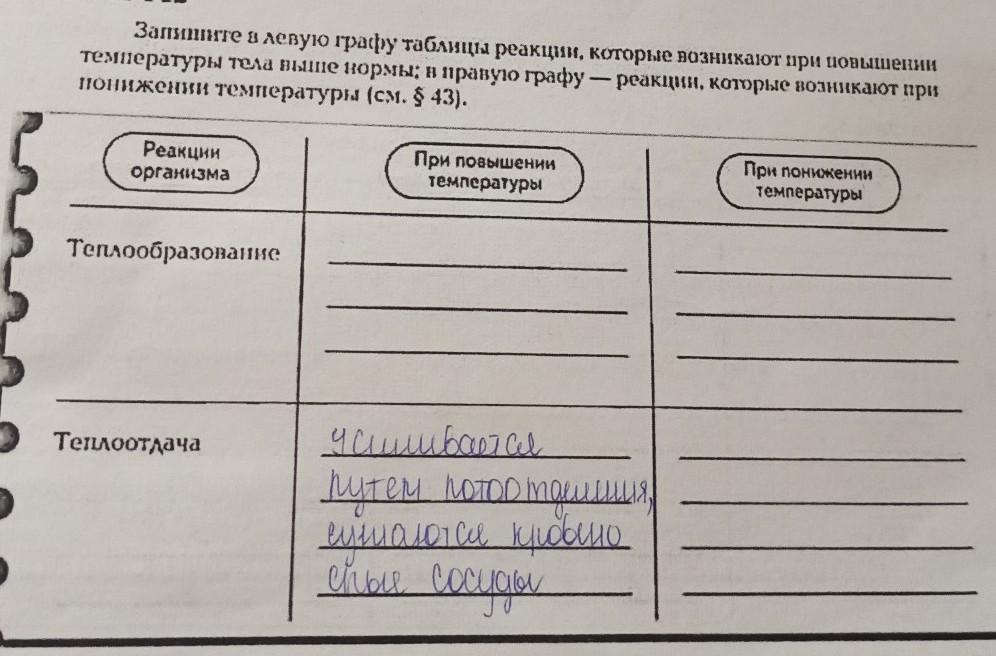 Запишите в левую графу таблицы реакции, которые возникают при повышении
температуры тела выше нормы; в правую графу — реакции, которые возникают при
понижении температуры (см. § 43).
Реакции
организма
При повышении
температуры
При понижении
температуры
Теплообразование
Теплоотдача
усиливается
путем потоотделения,
сужаются кровено
сные сосуды